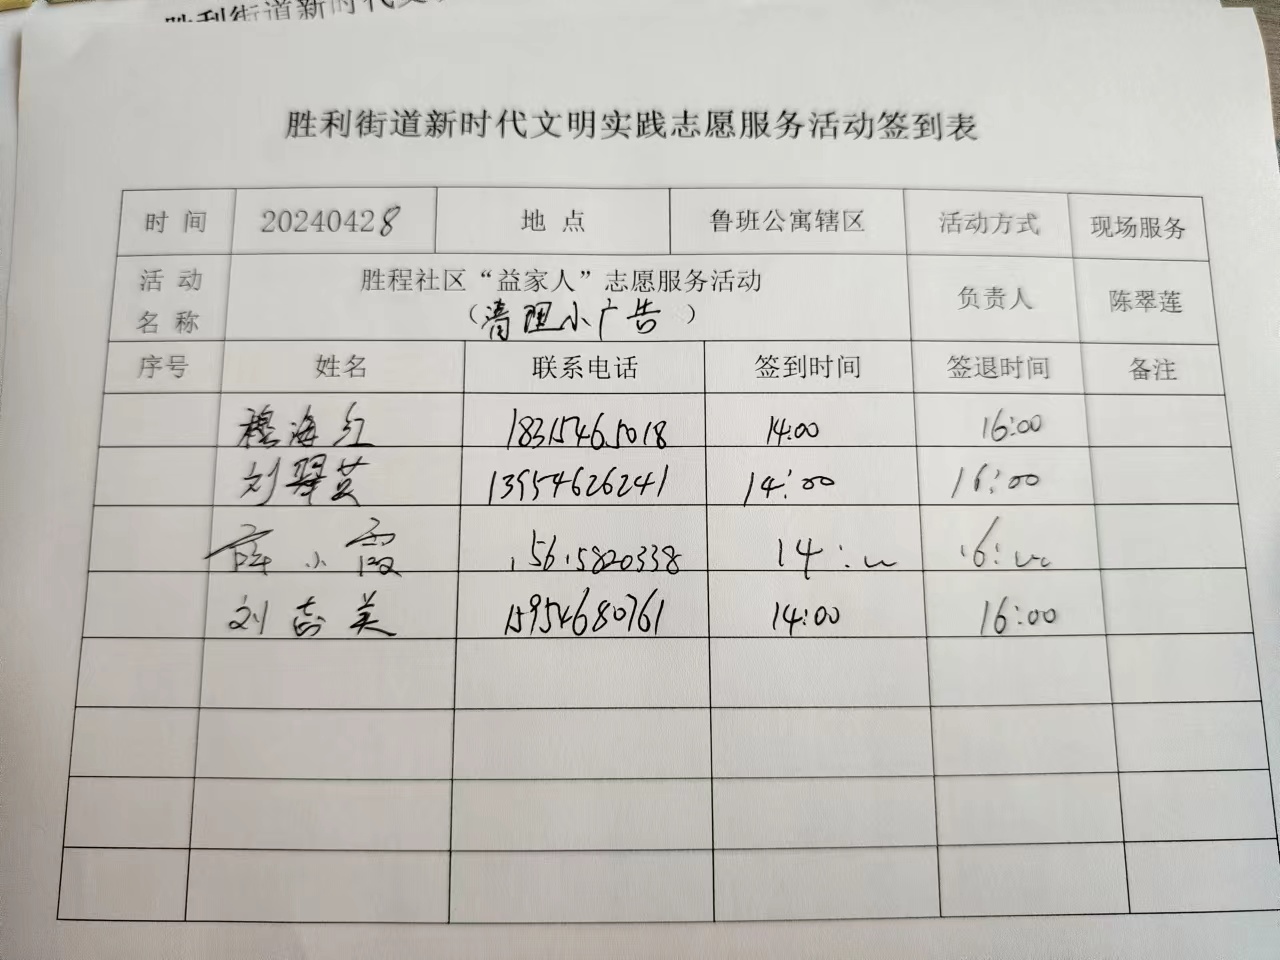 胜利街道新时代文
胜利街道新时代文明实践志愿服务活动签到表
时 间 20240428 地 点 鲁班公寓辖区 活动方式 现场服务
活 动 名 称 胜程社区“益家人”志愿服务活动 （清理小广告） 负责人 陈翠莲
序号 姓名 联系电话 签到时间 签退时间 备注
穆海红 18315465018 14:00 16:00
刘翠英 13954626241 14:00 16:00
薛小霞 15615820338 14:00 16:00
刘吉美 15954680761 14:00 16:00